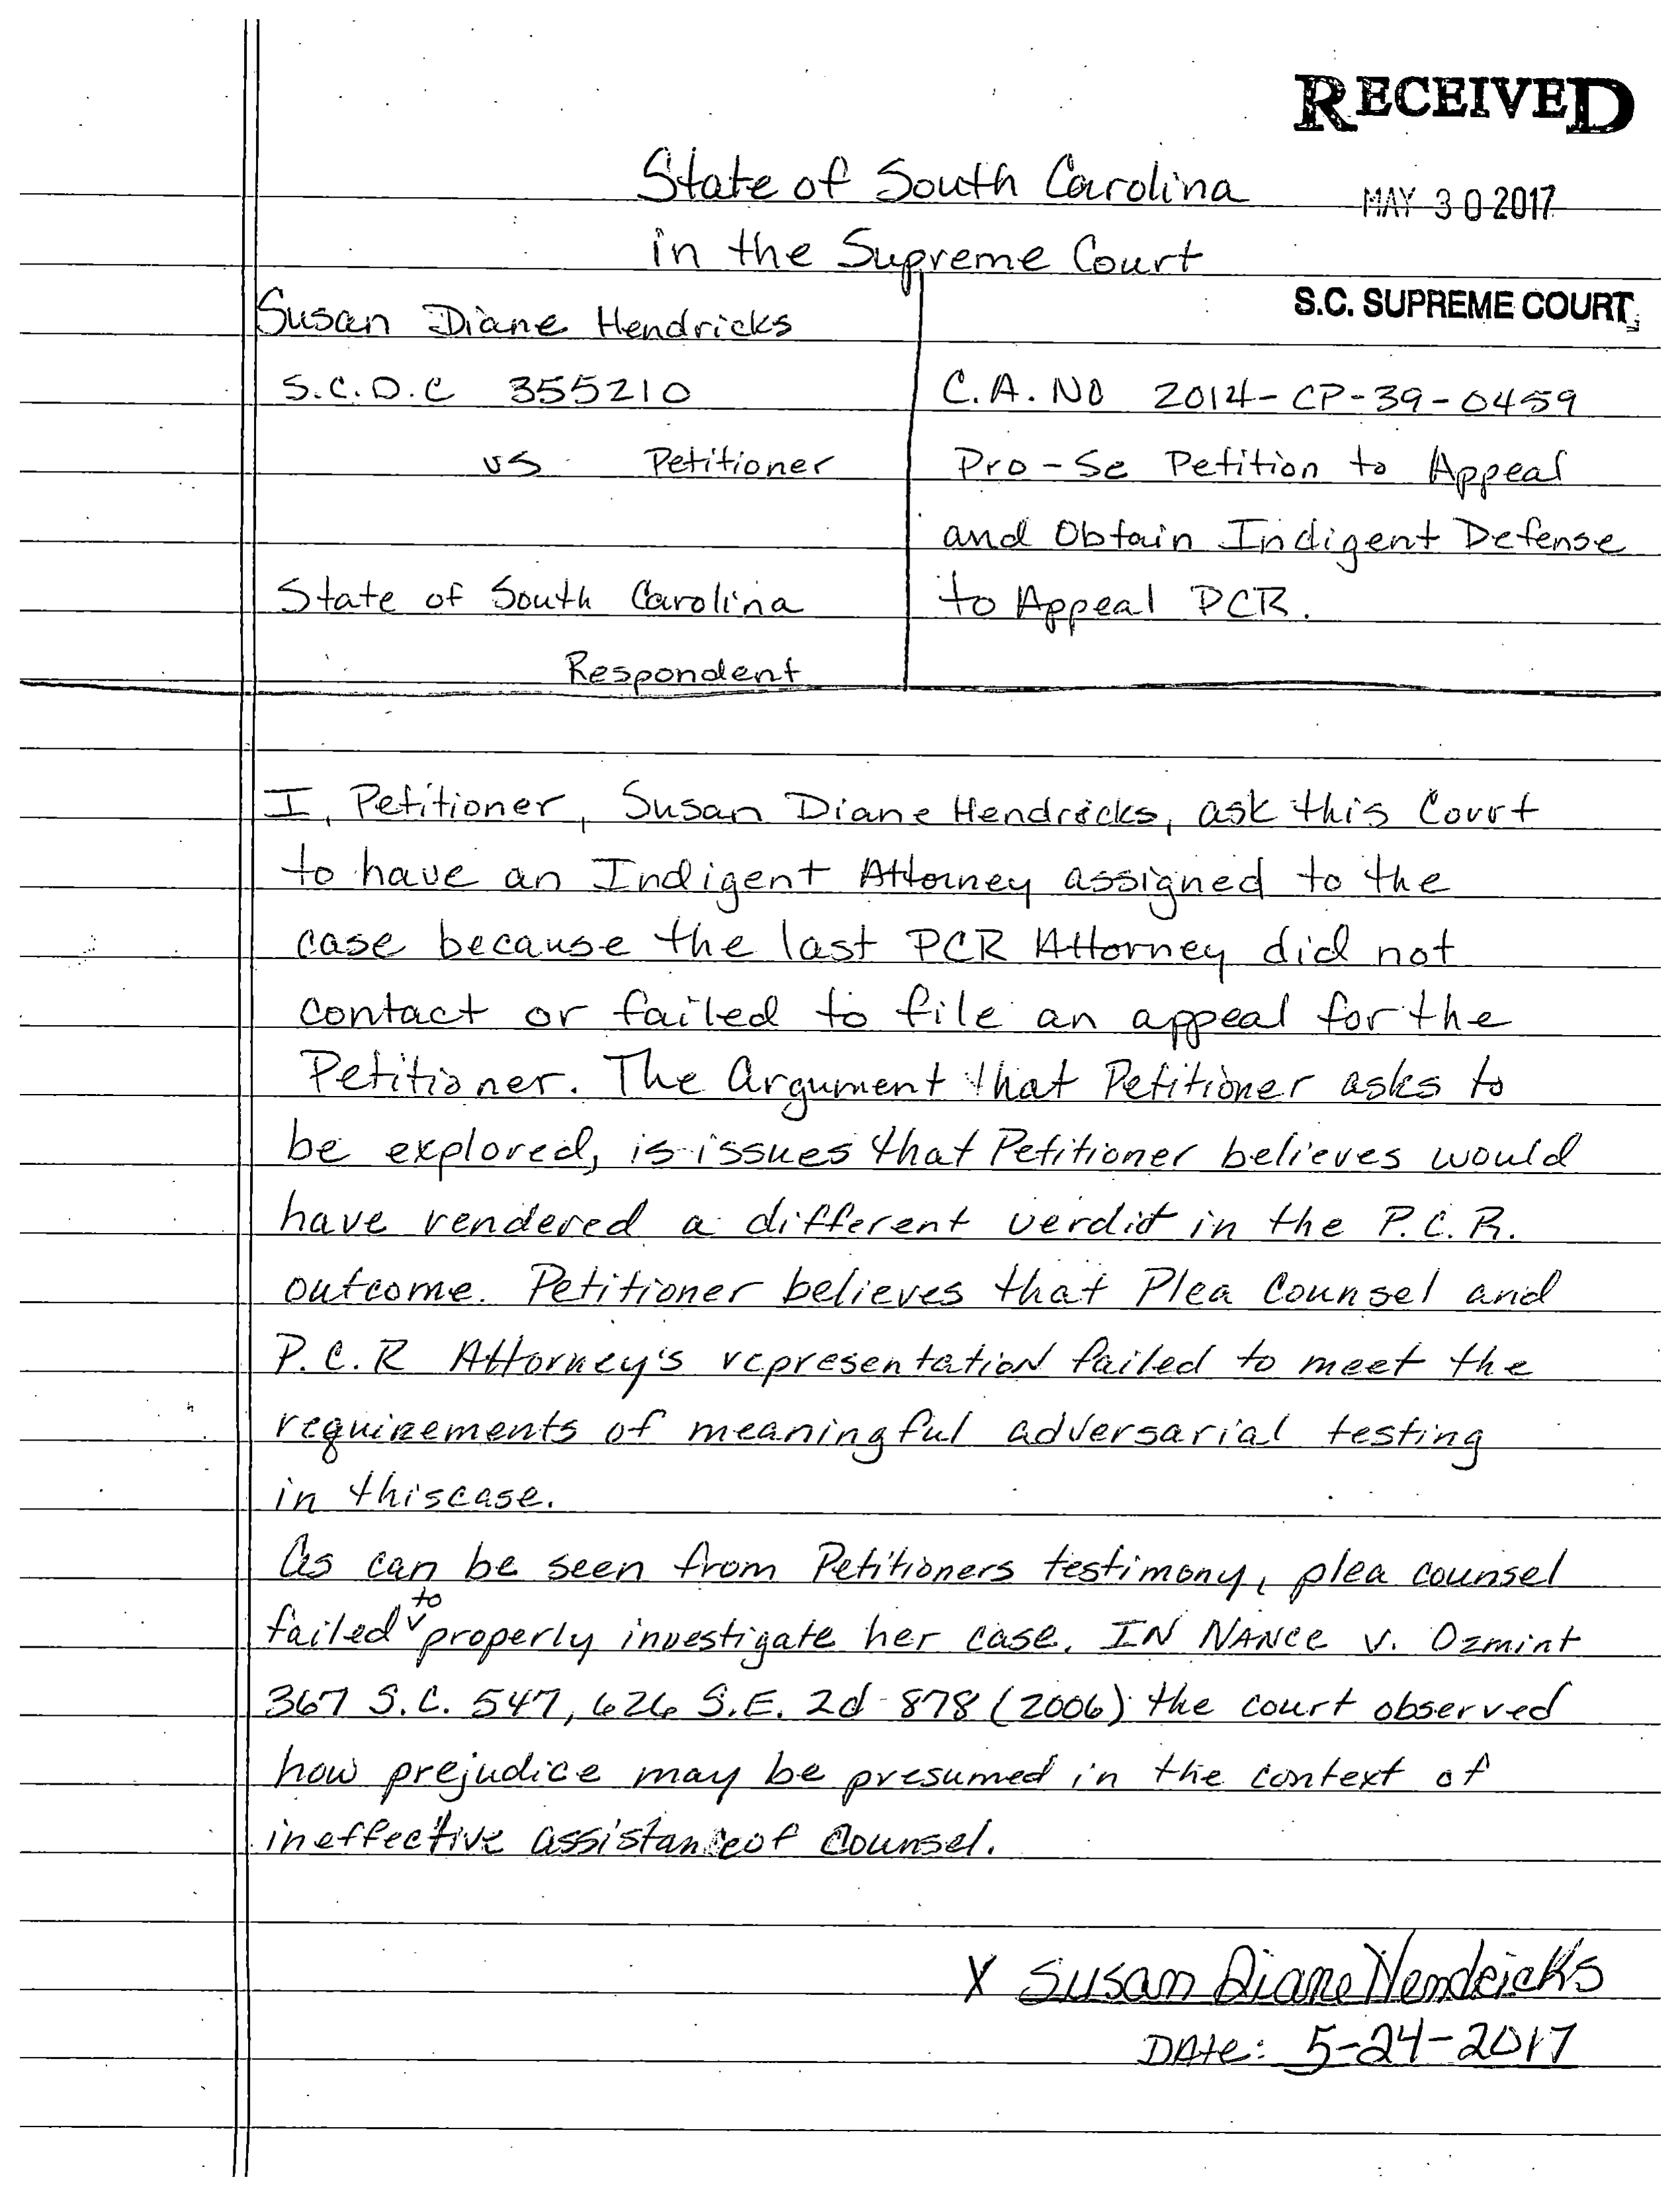 RECEIVED
State of South Carolina
MAY 30 2017
in the Supreme Court
S.C. SUPREME COURT
Susan Diane Hendricks
S.C.D.C 355210
C.A. NO 2014-CP-39-0459
vs Petitioner
Pro-Se Petition to Appeal
and Obtain Indigent Defense
State of South Carolina
to Appeal PCR.
Respondent
I, Petitioner, Susan Diane Hendricks, ask this Court
to have an Indigent Attorney assigned to the
case because the last PCR Attorney did not
contact or failed to file an appeal for the
Petitioner. The Argument that Petitioner asks to
be explored, is issues that Petitioner believes would
have rendered a different verdict in the P.C.R.
outcome. Petitioner believes that Plea Counsel and
P.C.R Attorney's representation failed to meet the
requirements of meaningful adversarial testing
in thiscase.
As can be seen from Petitioners testimony, plea counsel
failed to properly investigate her case. IN NANCE v. Ozmint
367 S.C. 547, 626 S.E. 2d 878 (2006) the court observed
how prejudice may be presumed in the context of
ineffective assistance of Counsel.
X Susan Diane Hendricks
DATE: 5-24-2017